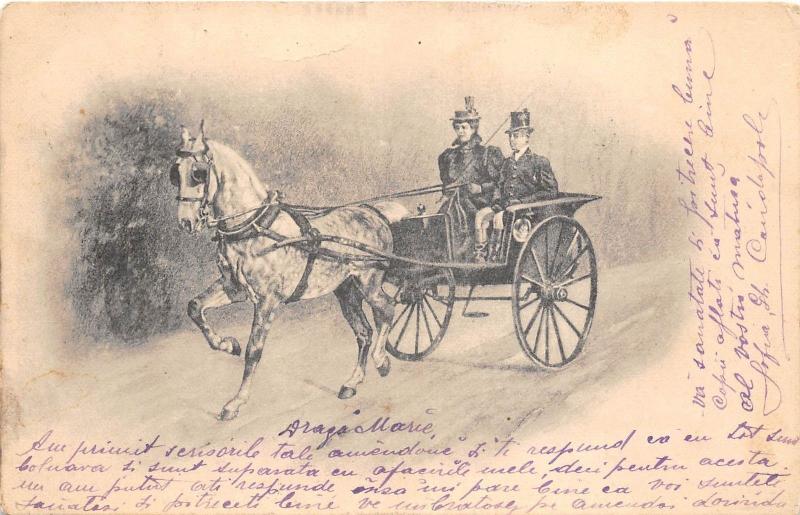 Dragă Marie,
Am primit scrisorile tale amêndouě si ti respund că eu tot sunt
bolnavă si sunt superata cu afacerile mele, deci pentru acesta
nu am putut ati respunde însa mi pare bine ca voi sunteti
sanatosi si petreceti bine ve imbratosez pe amendoi dorindu
vă sanatate si petrecere bună
copii aflati că sunt bine
al vostru
Sofia Gh.